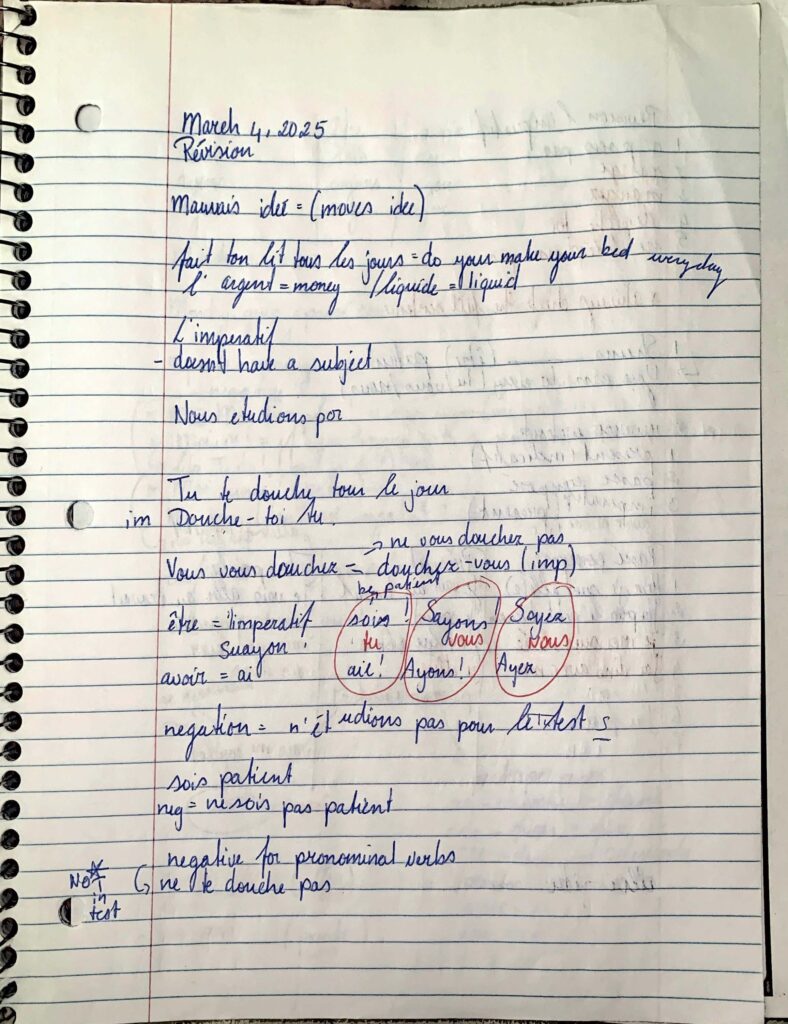 March 4, 2025
Révision
Mauvais ideé = (moves idee)
fait ton lit tous les jours = do your make your bed everyday
l'argent = money /liquide = liquid
L'imperatif
- doesn't have a subject
Nous etudions por
Tu te douche tour le jour
im Douche-toi tu.
→ ne vous douchez pas
Vous vous douchez = douchez-vous (imp)
be patient
être = l'imperatif sois! Sayons! Soyez
Suayon tu vous vous
avoir = ai aie! Ayons! Ayez
negation = n'étudions pas pour le test s
sois patient
neg = ne sois pas patient
negative for pronominal verbs
ne te douche pas
Not in test